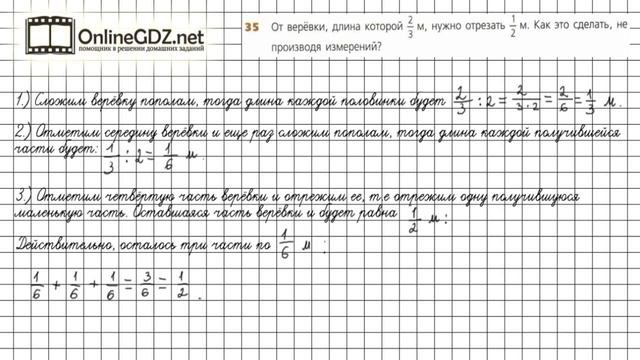 OnlineGDZ.net
помощник в решении домашних заданий
35 От верёвки, длина которой 2/3 м, нужно отрезать 1/2 м. Как это сделать, не
производя измерений?
1.) Сложим верёвку пополам, тогда длина каждой половинки будет 2/3 : 2 = 2/3·2 = 2/6 = 1/3 м.
2.) Отметим середину верёвки и еще раз сложим пополам, тогда длина каждой получившейся
части будет: 1/3 : 2 = 1/6 м.
3.) Отметим четвёртую часть верёвки и отрежем ее, т.е отрежем одну получившуюся
маленькую часть. Оставшаяся часть верёвки и будет равна 1/2 м:
Действительно, осталось три части по 1/6 м :
1/6 + 1/6 + 1/6 = 3/6 = 1/2 .